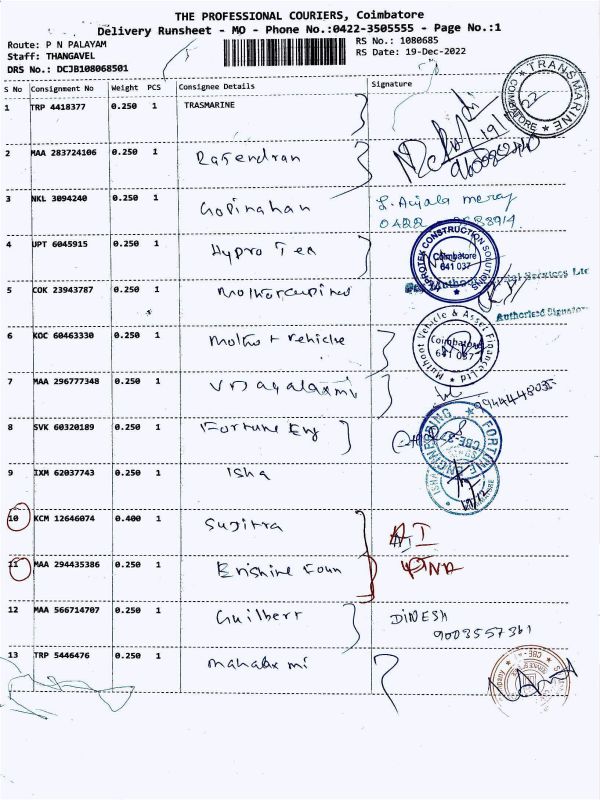 THE PROFESSIONAL COURIERS, Coimbatore
Delivery Runsheet - MO - Phone No.:0422-3505555 - Page No.:1
Route: P N PALAYAM
Staff: THANGAVEL
DRS No.: DCJB108068501
RS No.: 1080685
RS Date: 19-Dec-2022
S No Consignment No Weight PCS Consignee Details Signature
1 TRP 4418377 0.250 1 TRASMARINE
TRANSMARINE
2 MAA 283724106 0.250 1 Rajendran
3 NKL 3094240 0.250 1 Gopinahan
4 UPT 6045915 0.250 1 Hypro Tea
HYPROTEK CONSTRUCTION SOLUTIONS
Coimbatore
641 037
5 COK 23943787 0.250 1
Services Ltd
Authorised Signatory
6 KOC 60463330 0.250 1 Mothot Vehicle
Muthoot Vehicle & Asset Finance Ltd
Coimbatore
641 037
7 MAA 296777348 0.250 1
8 SVK 60320189 0.250 1 Fortune Eng
FORTUNE ENGINEERING
CBE-37
9 IXM 62037743 0.250 1 Isha
10 KCM 12646074 0.400 1 Sujitra
11 MAA 294435386 0.250 1
12 MAA 566714707 0.250 1 Guilbert DINESH
9003557361
13 TRP 5446476 0.250 1 Mahalaxmi